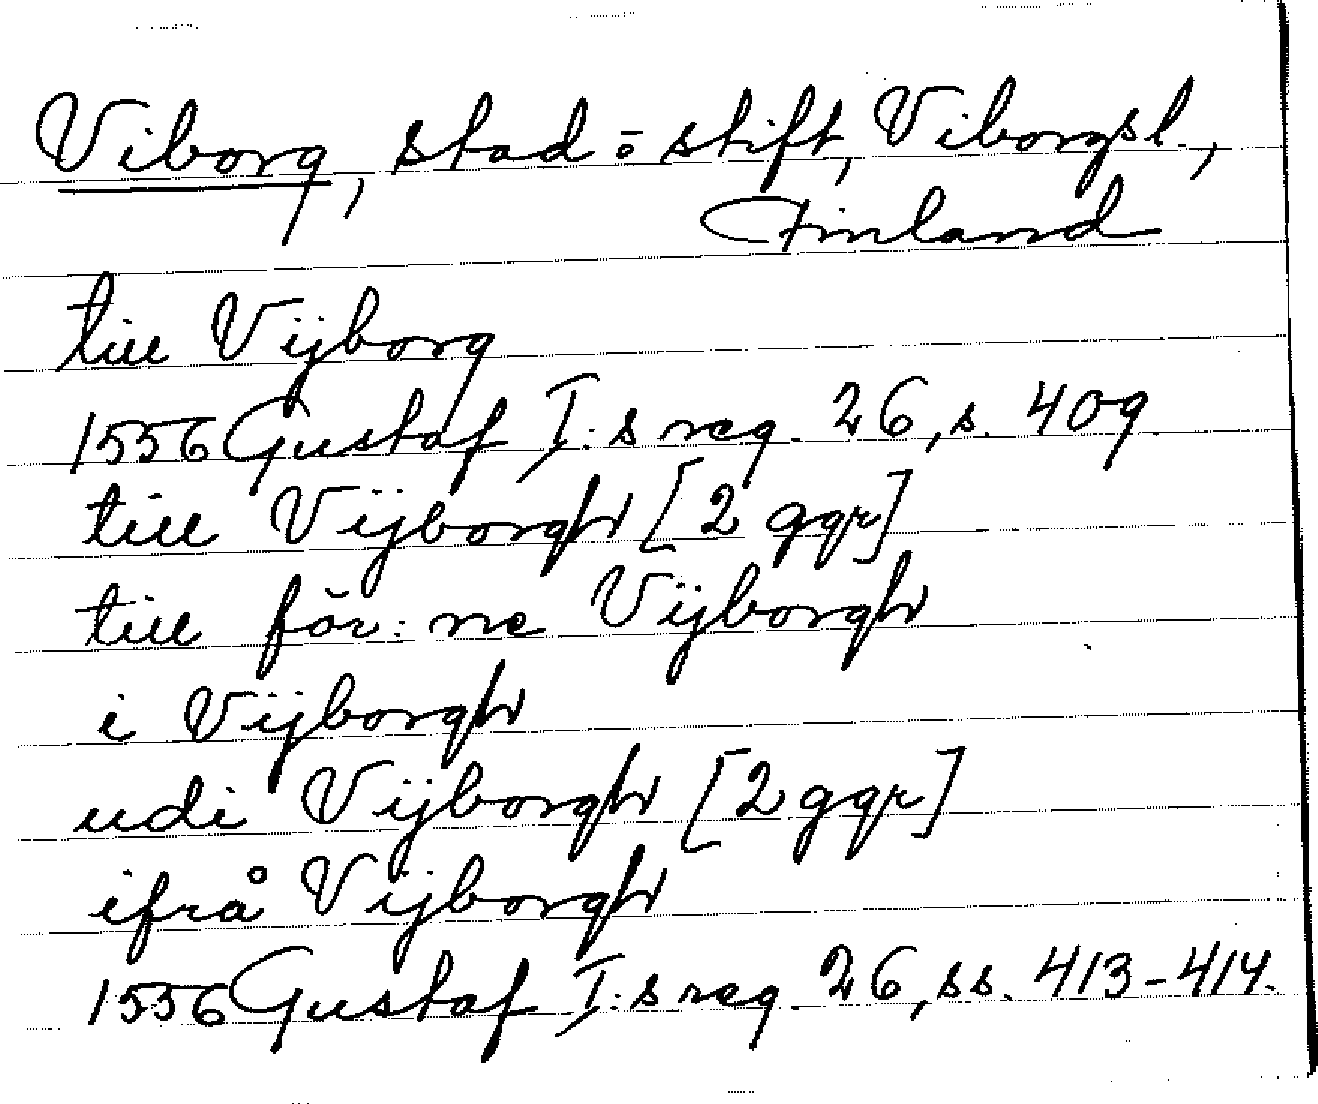 Viborg, stad o stift, Viborgsl.,
Finland
till Vijborg
1556 Gustaf I:s reg. 26, s. 409
till Vijborgh [2 ggr]
till för:ne Vijborgh
i Vijborgh
udi Vijborgh [2 ggr]
ifrå Vijborgh
1556 Gustaf I:s reg. 26, ss. 413-414.